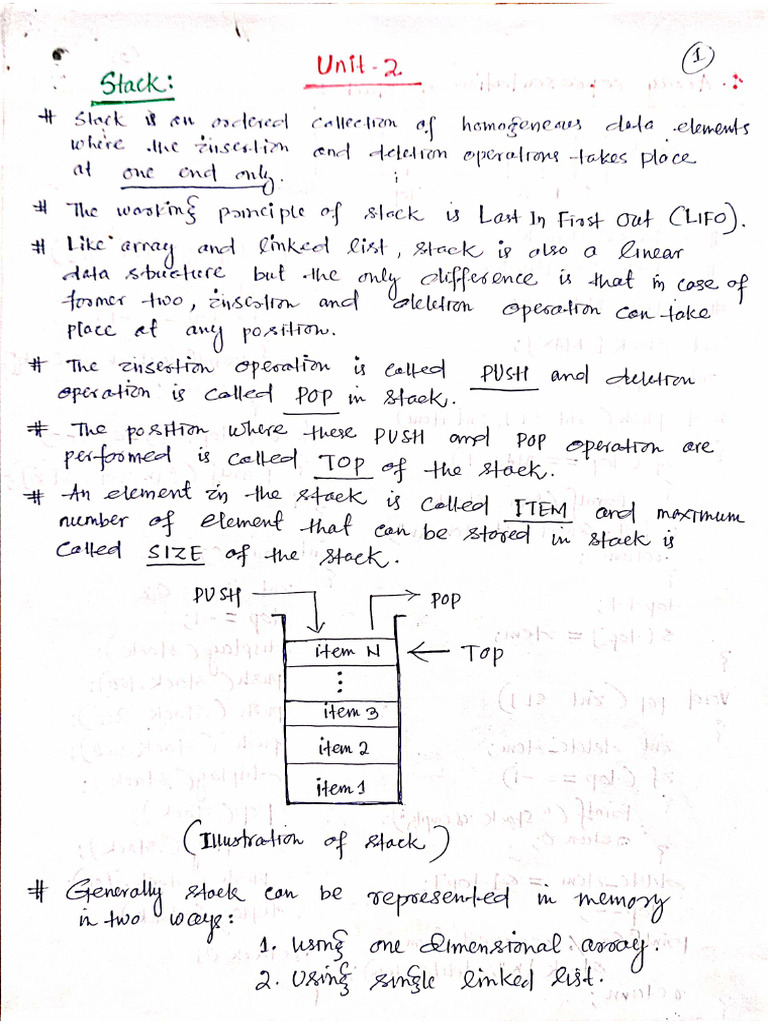 Unit-2
1
Stack:
# Stack is an ordered collection of homogeneous data elements
where the insertion and deletion operations takes place
at one end only.
# The working principle of stack is Last In First Out (LIFO).
# Like array and linked list, stack is also a linear
data structure but the only difference is that in case of
former two, insertion and deletion operation can take
place at any position.
# The insertion operation is called PUSH and deletion
operation is called POP in stack.
# The position where these PUSH and POP operation are
performed is called TOP of the stack.
# An element in the stack is called ITEM and maximum
number of element that can be stored in stack is
called SIZE of the stack.
PUSH POP
item N TOP
item 3
item 2
item 1
(Illustration of stack)
# Generally stack can be represented in memory
in two ways:
1. using one dimensional array.
2. using single linked list.